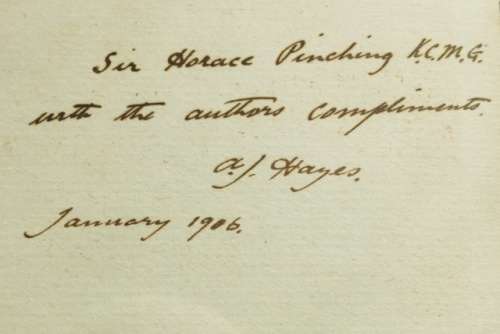 Sir Horace Pinching K.C.M.G.
with the authors compliments.
A.J. Hayes.
January 1906.